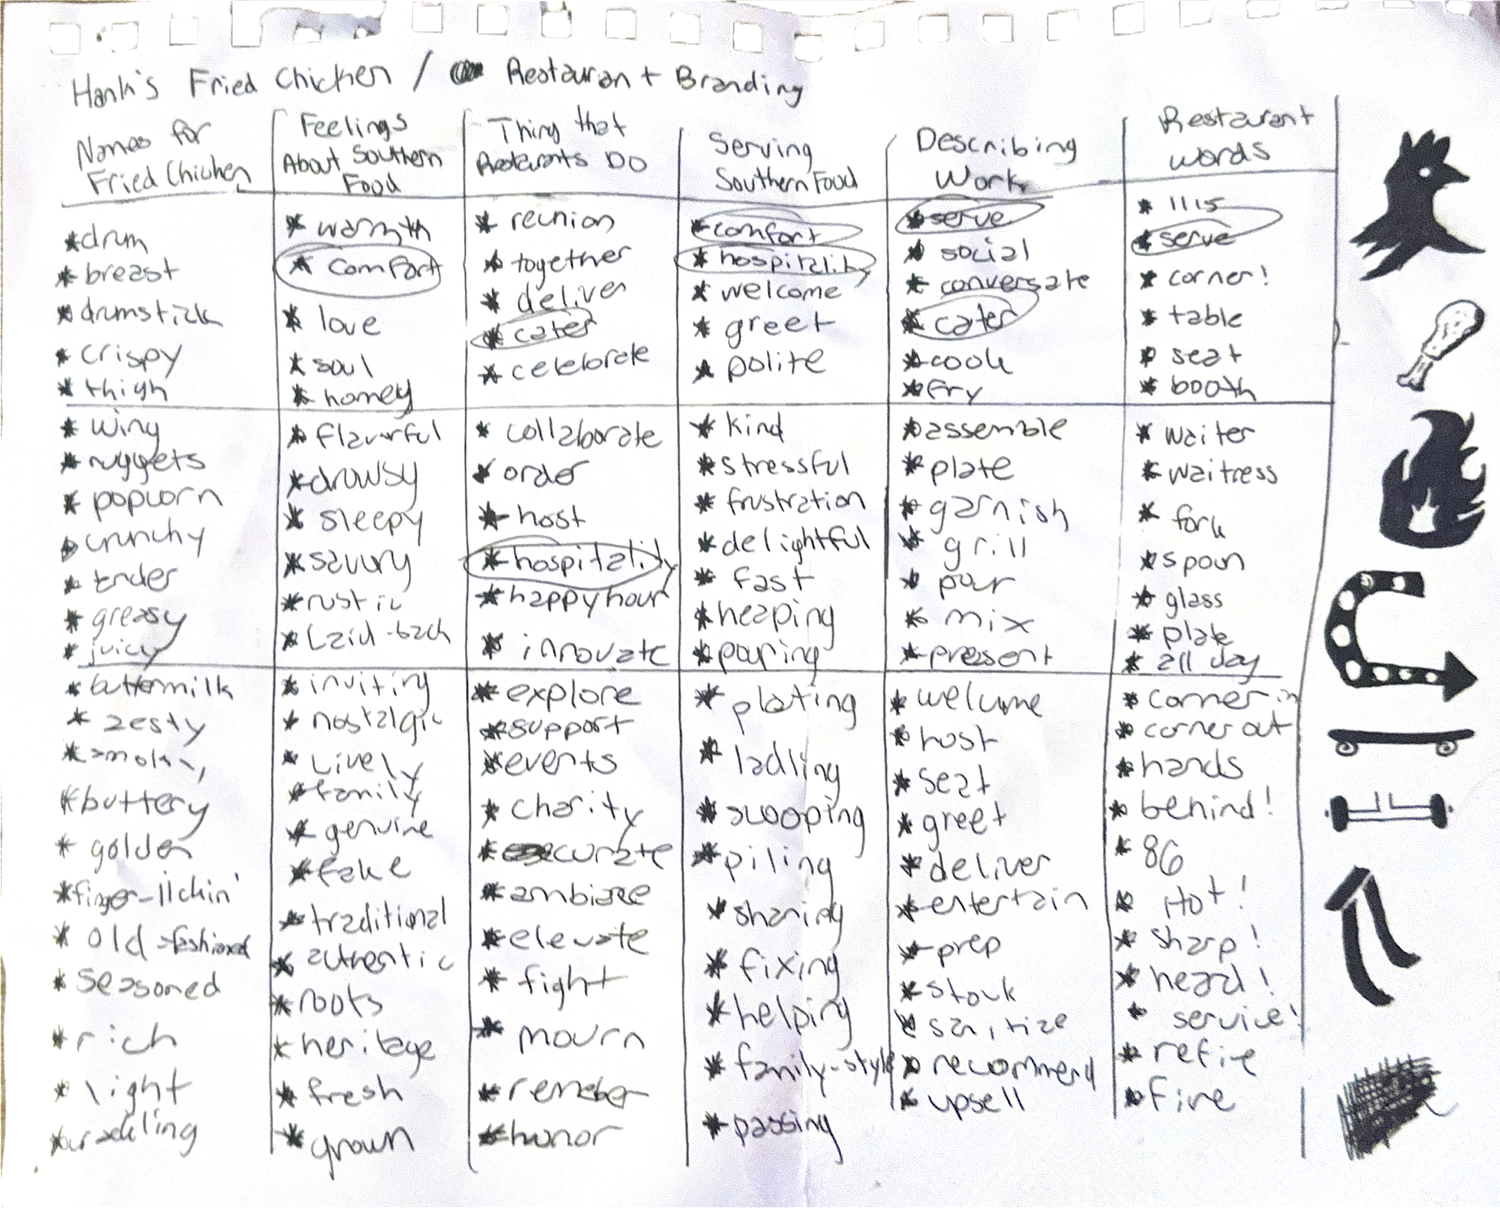 Hank's Fried Chicken / Restaurant Branding
Names for
Fried Chicken
* drum
* breast
* drumstick
* crispy
* thigh
* wing
* nuggets
* popcorn
* crunchy
* tender
* greasy
* juicy
* buttermilk
* zesty
* smokey
* buttery
* golden
* finger-lickin'
* old-fashioned
* seasoned
* rich
* light
Feelings
About Southern
Food
* warmth
* comfort
* love
* soul
* homey
* flavorful
* drowsy
* sleepy
* savory
* rustic
* Laid-back
* inviting
* nostalgic
* Lively
* family
* genuine
* fake
* traditional
* authentic
* roots
* heritage
* fresh
* grown
Thing that
Restaurants Do
* reunion
* together
* deliver
* cater
* celebrate
* collaborate
* order
* host
* hospitality
* happy hour
* innovate
* explore
* support
* events
* charity
* curate
* elevate
* fight
* mourn
* honor
Serving
Southern Food
* comfort
* hospitality
* welcome
* greet
* polite
* kind
* stressful
* frustration
* delightful
* fast
* heaping
* pouring
* plating
* ladling
* scooping
* piling
* sharing
* fixing
* helping
* family-style
* passing
Describing
Work
* serve
* social
* conversate
* cater
* cook
* fry
* assemble
* plate
* garnish
* grill
* pour
* mix
* present
* welcome
* host
* seat
* greet
* deliver
* entertain
* prep
* stock
* sanitize
* recommend
* upsell
Restaurant
words
* serve
* corner!
* table
* seat
* booth
* waiter
* waitress
* fork
* spoon
* glass
* plate
* all day
* corner in
* corner out
* hands
* behind!
* 86
* Hot!
* sharp!
* heard!
* service!
* refire
* fire